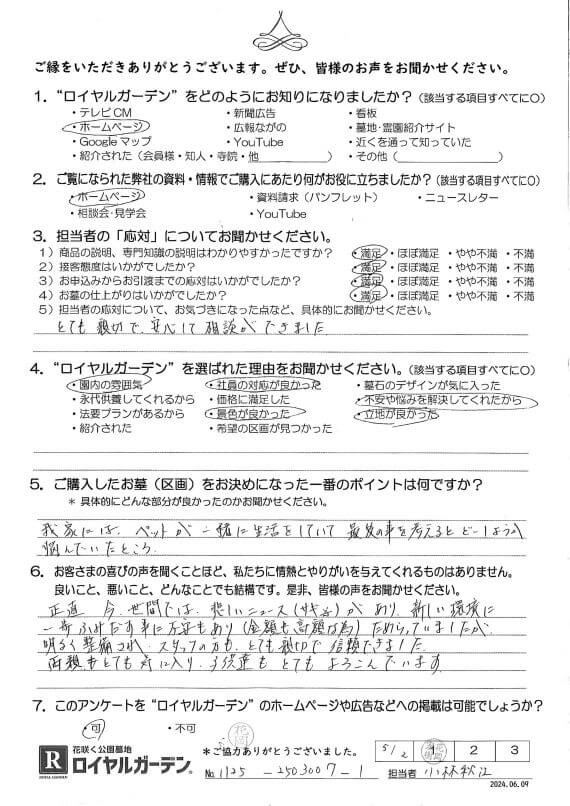 ご縁をいただきありがとうございます。ぜひ、皆様のお声をお聞かせください。
1．“ロイヤルガーデン”をどのようにお知りになりましたか？（該当する項目すべてに〇）
・テレビCM ・新聞広告 ・看板
・ホームページ ・広報ながの ・墓地・霊園紹介サイト
・Googleマップ ・YouTube ・近くを通って知っていた
・紹介された（会員様・知人・寺院・他　　　） ・その他（　　　）
2．ご覧になられた弊社の資料・情報でご購入にあたり何がお役に立ちましたか？（該当する項目すべてに〇）
・ホームページ ・資料請求（パンフレット） ・ニュースレター
・相談会・見学会 ・YouTube
3．担当者の「応対」についてお聞かせください。
1）商品の説明、専門知識の説明はわかりやすかったですか？ ・満足 ・ほぼ満足 ・やや不満 ・不満
2）接客態度はいかがでしたか？ ・満足 ・ほぼ満足 ・やや不満 ・不満
3）お申込みからお引渡までの応対はいかがでしたか？ ・満足 ・ほぼ満足 ・やや不満 ・不満
4）お墓の仕上がりはいかがでしたか？ ・満足 ・ほぼ満足 ・やや不満 ・不満
5）担当者の応対について、お気づきになった点など、具体的にお聞かせください。
とても親切で、安心して相談ができました
4．“ロイヤルガーデン”を選ばれた理由をお聞かせください。（該当する項目すべてに〇）
・園内の雰囲気 ・社員の対応が良かった ・墓石のデザインが気に入った
・永代供養してくれるから ・価格に満足した ・不安や悩みを解決してくれたから
・法要プランがあるから ・景色が良かった ・立地が良かった
・紹介された ・希望の区画が見つかった
5．ご購入したお墓（区画）をお決めになった一番のポイントは何ですか？
＊具体的にどんな部分が良かったのかお聞かせください。
我家には、ペットが一緒に生活をしていて最後の事を考えるとどーしようか
悩んでいたところ.
6．お客さまの喜びの声を聞くことほど、私たちに情熱とやりがいを与えてくれるものはありません。
良いこと、悪いこと、どんなことでも結構です。是非、皆様のお声をお聞かせください。
正直 今、世間では、悲しいニュース（）があり、新しい環境に
一歩ふみだす事に不安もあり（金額も高額な為）ためらっていましたが
明るく整備され、スタッフの方も、とても親切で信頼できました
両親もとても気に入り、子供達もとてもよろこんでいます
7．このアンケートを“ロイヤルガーデン”のホームページや広告などへの掲載は可能でしょうか？
・可 ・不可
花咲く公園墓地
R ROYAL GARDEN ロイヤルガーデン®
＊ご協力ありがとうございました。
5/2 1 2 3
No. 1125 - 2503007 - 1 担当者 小林秋江
2024.06.09